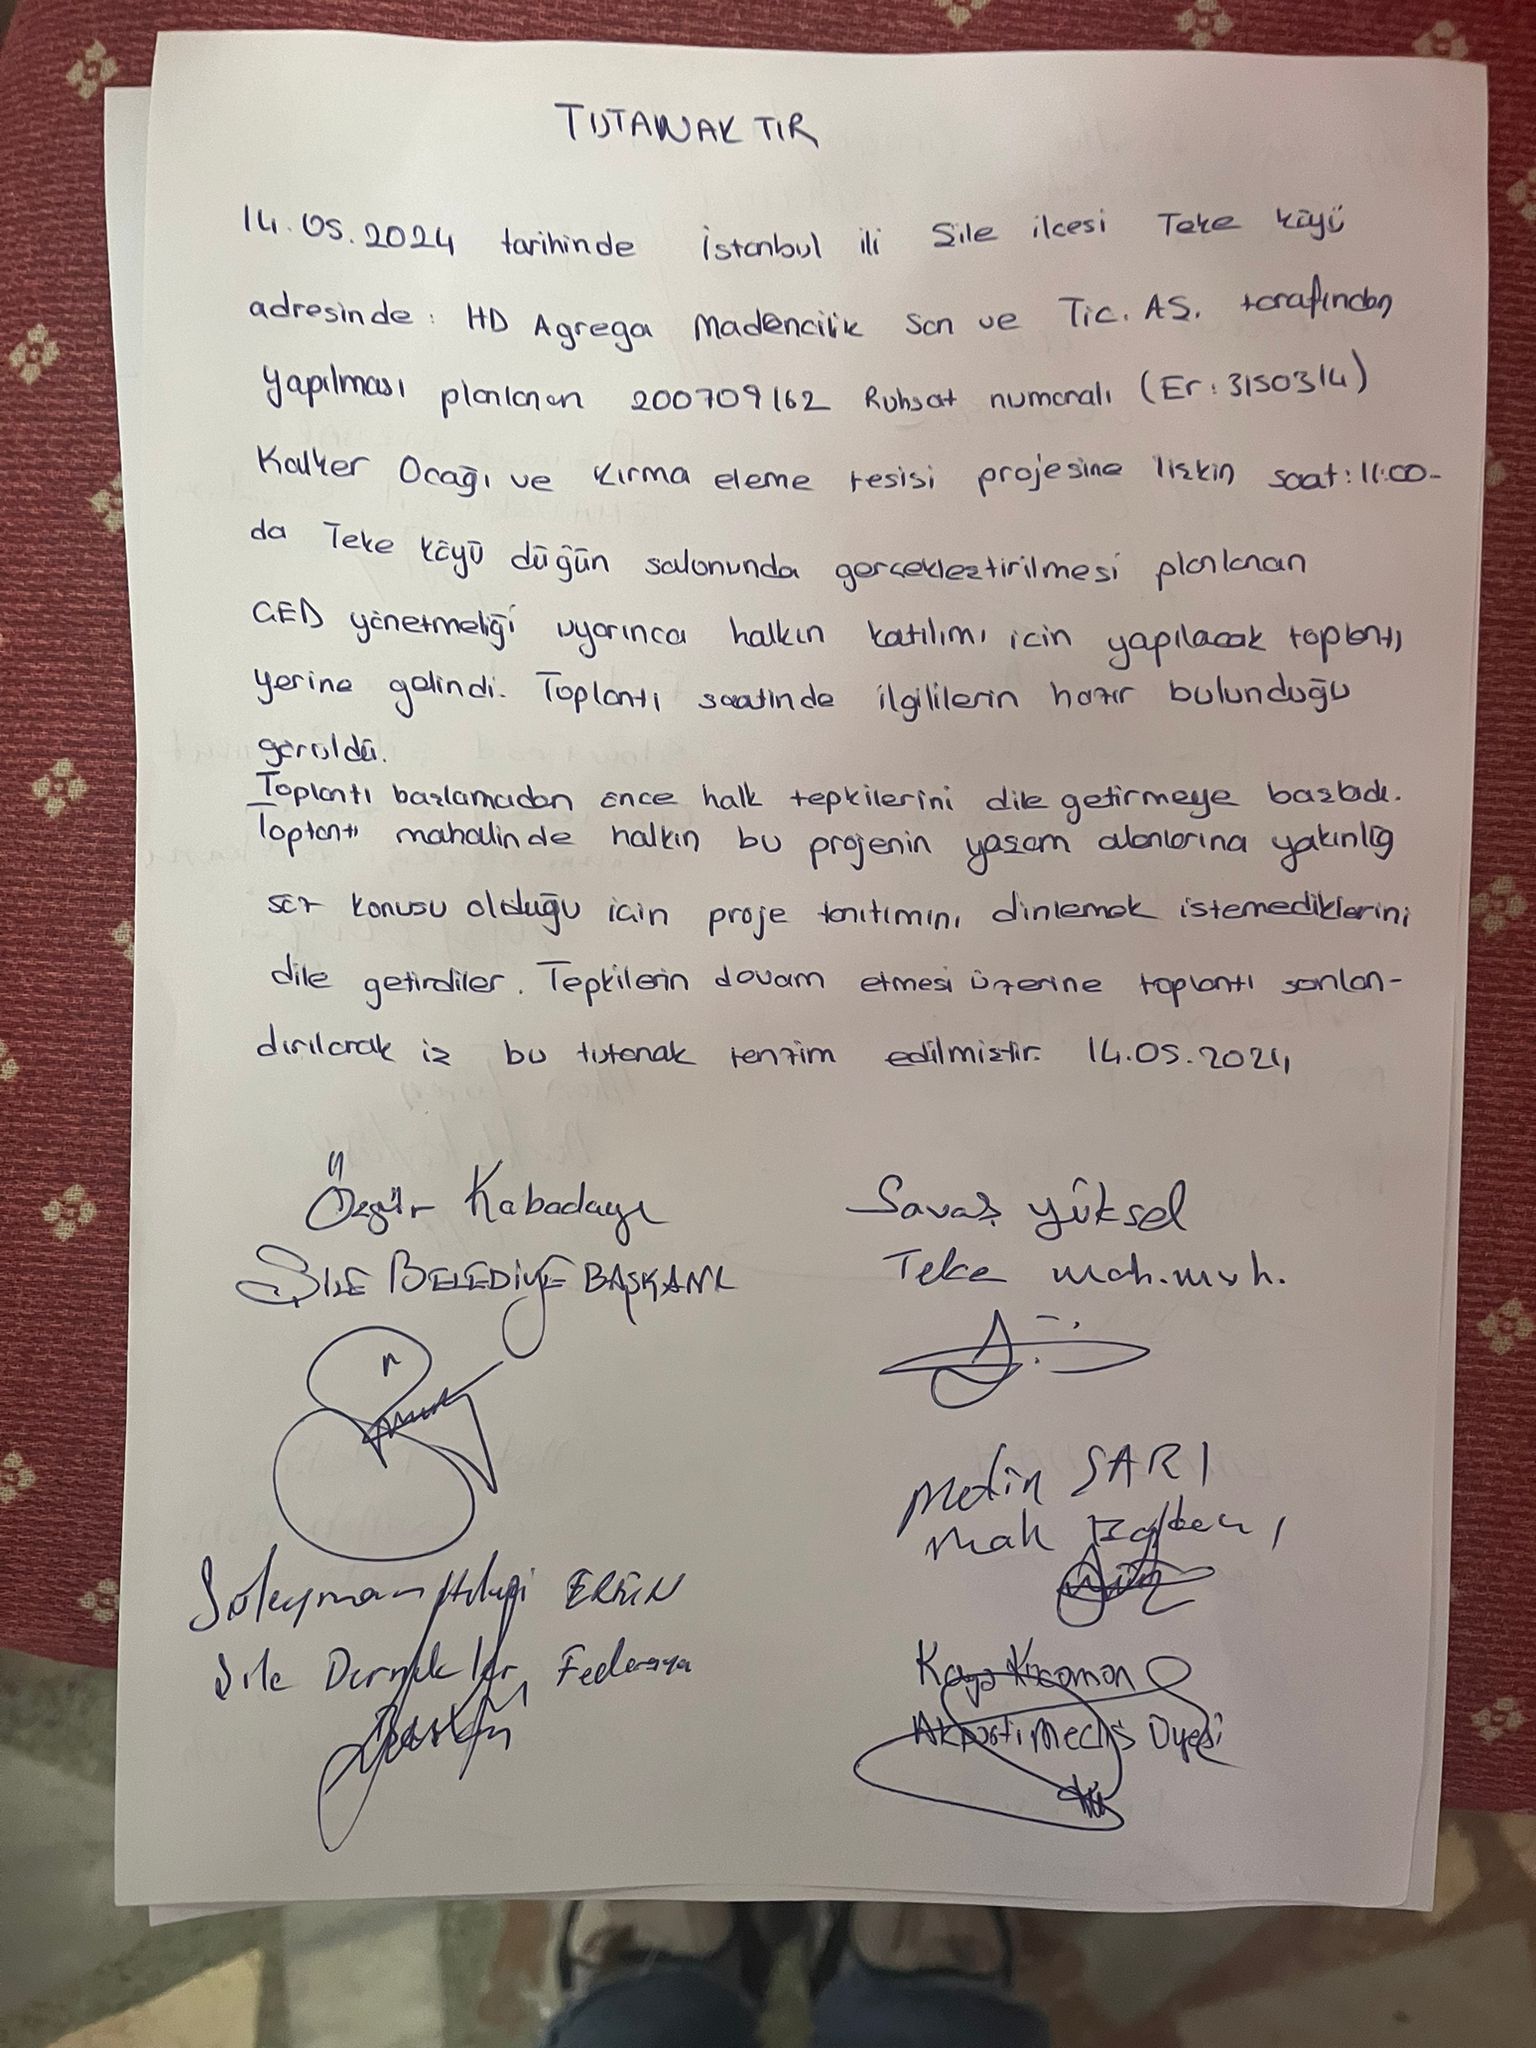 TUTANAKTIR
14.05.2024 tarihinde İstanbul ili Şile ilcesi Teke köyü
adresinde: HD Agrega Madencilik San ve Tic. AŞ. tarafından
yapılması planlanan 200709162 Ruhsat numaralı (Er: 3150314)
Kalker Ocağı ve kırma eleme tesisi projesine ilişkin saat: 11:00-
da Teke köyü düğün salonunda gerçekleştirilmesi planlanan
ÇED yönetmeliği uyarınca halkın katılımı icin yapılacak toplantı
yerine gelindi. Toplantı saatinde ilgililerin hazır bulunduğu
görüldü.
Toplantı başlamadan önce halk tepkilerini dile getirmeye başladı.
Toplantı mahalinde halkın bu projenin yaşam alanlarına yakınlığ
söz konusu olduğu icin proje tanıtımını dinlemek istemediklerini
dile getirdiler. Tepkilerin devam etmesi üzerine toplantı sonlan-
dırılarak iş bu tutanak tenzim edilmiştir. 14.05.2024
Özgür Kabadayı
ŞİLE BELEDİYE BAŞKANI
Savaş Yüksel
Teke mah. muh.
Metin SARI
mah
Süleyman ERKİN
Şile Dernekler Federasyo
Kaya Kocaman
AKparti Meclis Üyesi